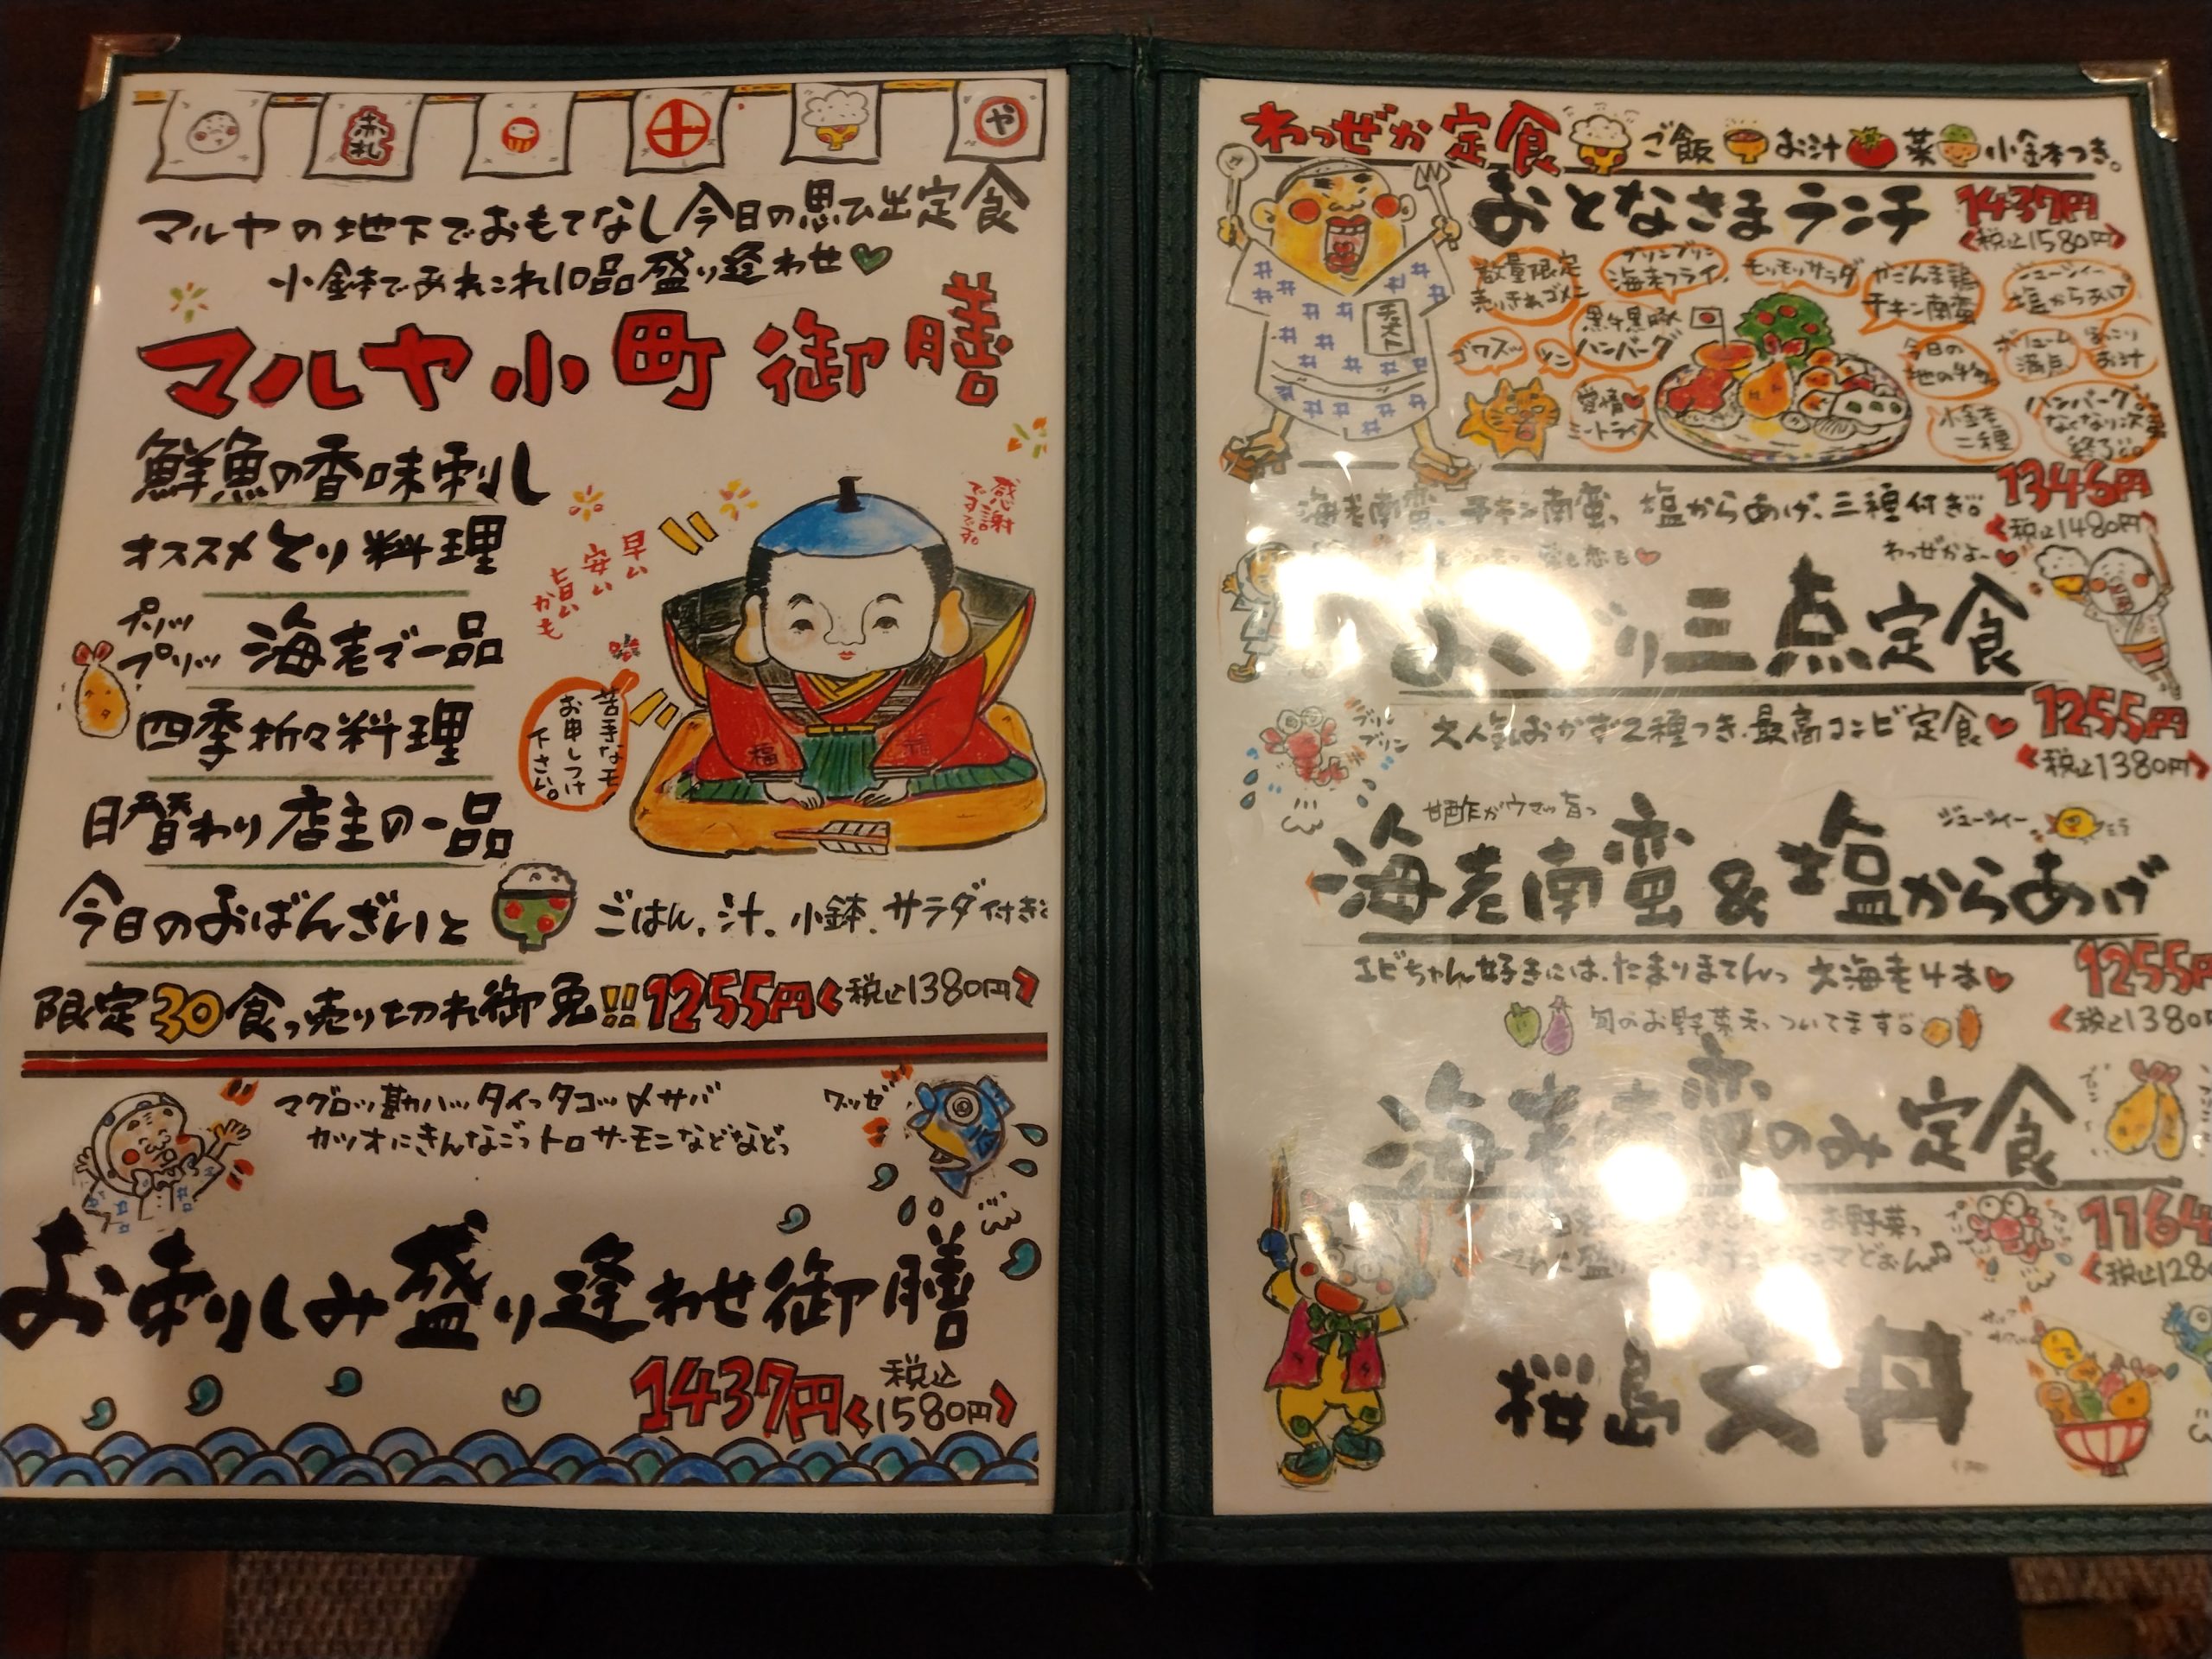 赤札
や
マルヤの地下でおもてなし今日の思ひ出定食
小鉢であれこれ10品盛り逢わせ
マルヤ小町御膳
鮮魚の香味刺し
オススメとり料理
プリッ
プリッ
海老で一品
四季折々料理
日替わり店主の一品
今日のおばんざいと
ごはん、汁、小鉢、サラダ付き
早い
安い
旨い
かも
感謝
です
苦手なモノ
お申しつけ
下さい。
福
限定30食っ売り切れ御免!!1255円<税込1380円>
マグロッ勘ハッタイッタコッ〆サバ
カツオにきんなごっトロサーモンなどなどっ
ワッゼ
お刺しみ盛り逢わせ御膳
1437円<税込1580円>
わっぜか定食 ご飯 お汁 菜 小鉢つき。
おとなさまランチ 1437円
<税込1580円>
数量限定
売りきれゴメン
プリンプリン
海老フライ
モリモリサラダ
かごんま鶏
チキン南蛮
ジューシィー
塩からあげ
黒牛黒豚
ハンバーグ
今日の
ボリューム
満点
ほっこり
お汁
愛情
ミートライス
小鉢を
二種
ハンバーグ
なくなり次第
終了
海老南蛮、チキン南蛮、塩からあげ、三種付き。 1346円
<税込1480円>
わっぜかよ〜
り三点定食
プリン
プリン
大人気おかず2種つき、最高コンビ定食 1255円
<税込1380円>
甘酢がウマッ旨っ
ジューシィー
海老南蛮&塩からあげ
エビちゃん好きには、たまりませんっ 大海老4本 1255円
<税込1380円
旬のお野菜天っついてます。
海老南蛮のみ定食
お野菜っ
1164
<税込128
桜島 丼